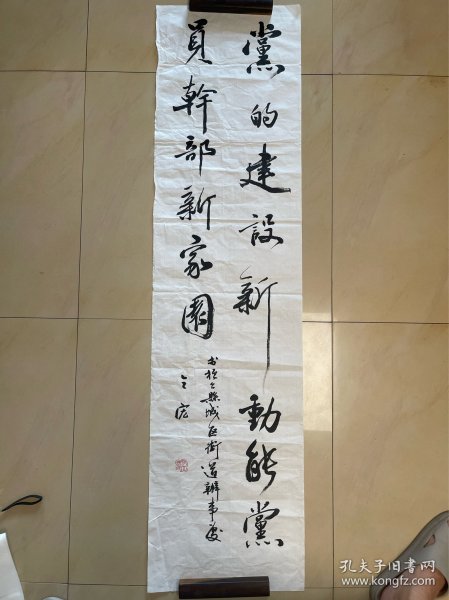 黨的建設新動能黨
員幹部新家園
書於莒縣城區街道辦事處
孔夫子旧书网
www.kongfz.com